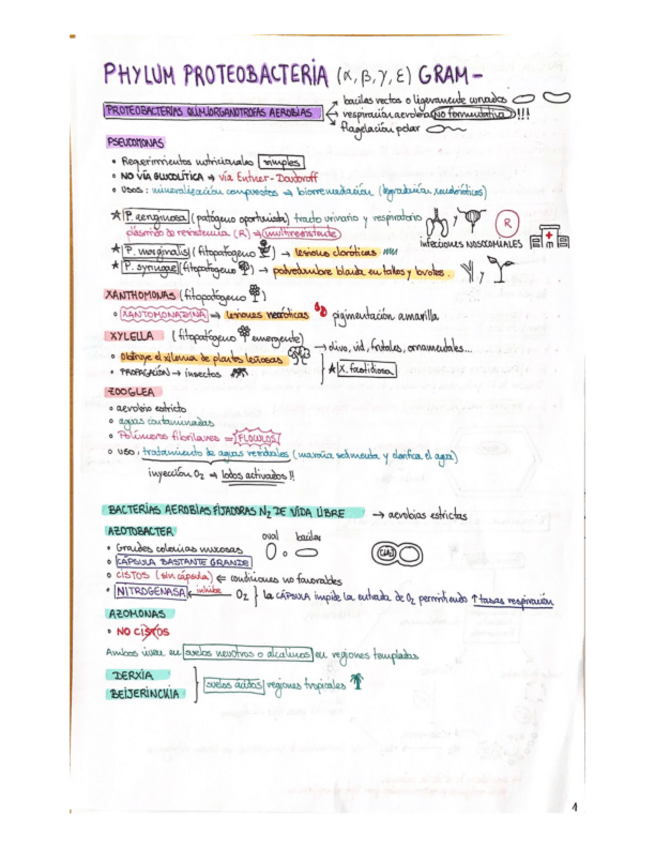 PHYLUM PROTEOBACTERIA (α, β, γ, ε) GRAM-
PROTEOBACTERIAS QUIMIORGANOTROFAS AEROBIAS
→ bacilos rectos o ligeramente curvados
→ respiración aerobia (No fermentativa) !!!
→ flagelación polar
PSEUDOMONAS
• Requerimientos nutricionales simples
• NO VÍA GLUCOLÍTICA → vía Entner-Doudoroff
• USOS: mineralización compuestos → biorremediación
★ P. aeruginosa (patógeno oportunista) tracto urinario y respiratorio y R
plásmido de resistencia (R) → multirresistente
infecciones NOSOCOMIALES
★ P. marginalis (fitopatógeno) → lesiones cloróticas
★ P. syringae (fitopatógeno) → podredumbre blanda en tallos y y
XANTHOMONAS (fitopatógeno)
• XANTOMONADINA → lesiones necróticas pigmentación amarilla
XYLELLA (fitopatógeno emergente) → olivo, vid, frutales, ornamentales...
• Obstruye el xilema de plantas leñosas
• PROPAGACIÓN → insectos
★ X. fastidiosa
ZOOGLEA
• aerobio estricto
• aguas contaminadas
• Polímeros fibrilares = FLÓCULOS
• USO: tratamiento de aguas residuales (maraña sedimenta y clarifica el agua)
inyección O2 → lodos activados !!
BACTERIAS AEROBIAS FIJADORAS N2 DE VIDA LIBRE → aerobias estrictas
AZOTOBACTER
oval bacilar
• Grandes colonias mucosas o
• CÁPSULA BASTANTE GRANDE
• CISTOS (sin cápsula) ⇐ condiciones no favorables
• NITROGENASA ← inhibe O2 } la CÁPSULA impide la entrada de O2 permitiendo ↑ tasas respiración
AZOMONAS
• NO CISTOS
Ambos viven en suelos neutros o alcalinos en regiones templadas
DERXIA
BEIJERINCKIA
suelos ácidos regiones tropicales
1